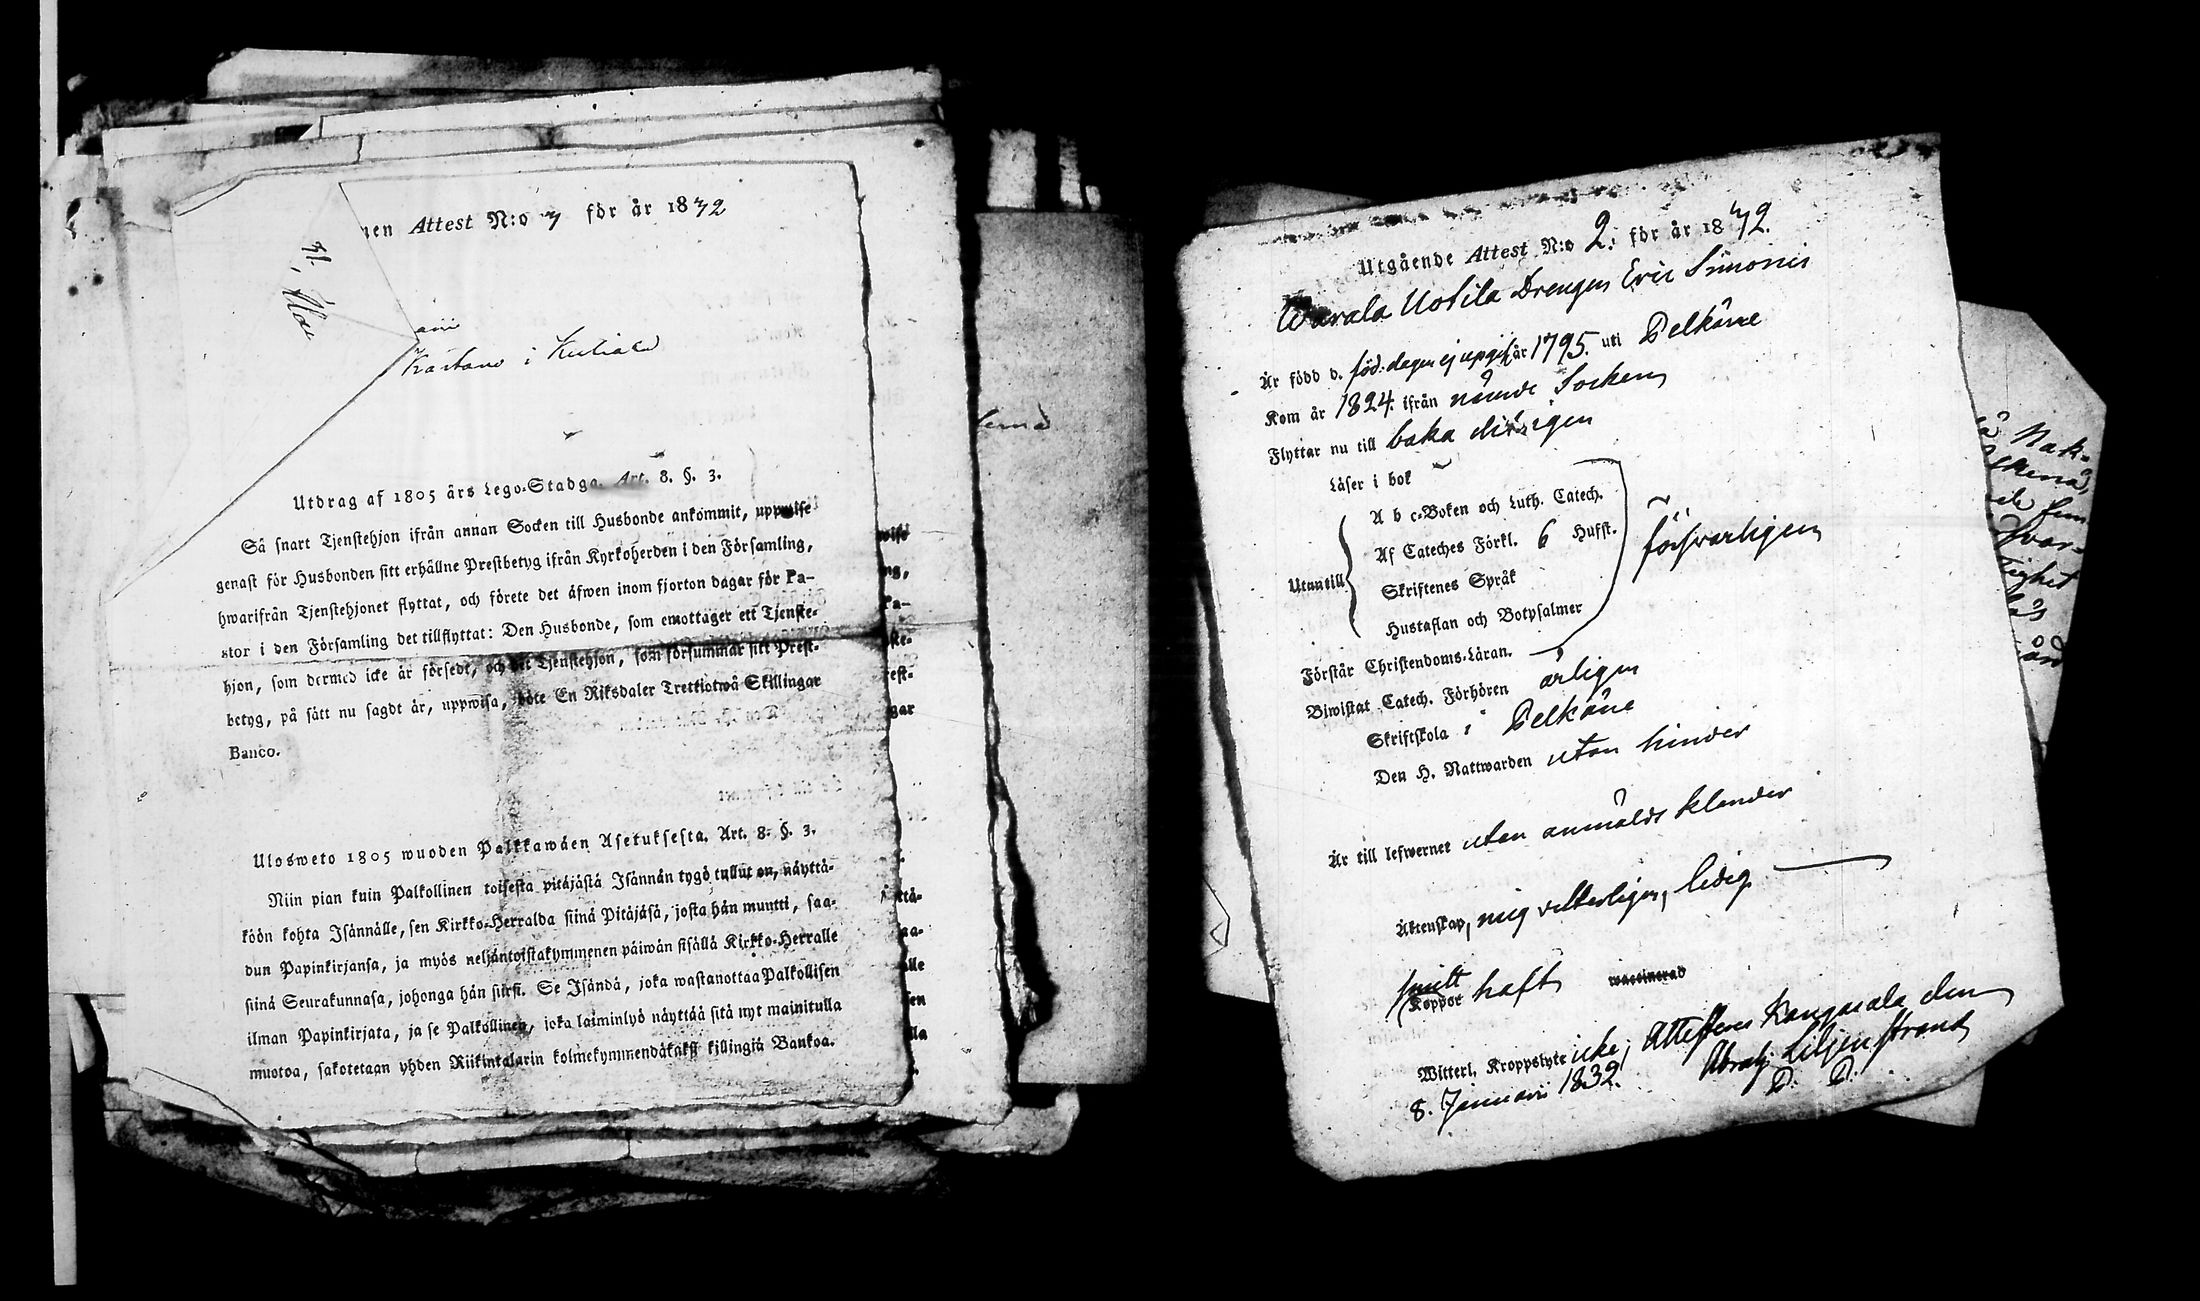 nen Attest N:o 7 för år 1832
Kartano i Kuhiala
Utdrag af 1805 års Lego-Stadga. Art. 8. §. 3.
Så snart Tjenstehjon ifrån annan Socken till Husbonde ankommit, uppwise
genast för Husbonden sitt erhållne Prestbetyg ifrån Kyrkoherden i den Församling,
hwarifrån Tjenstehjonet flyttat, och förete det äfwen inom fjorton dagar för Pa-
stor i den Församling det tillflyttat: Den Husbonde, som emottager ett Tjenste-
hjon, som dermed icke är försedt, och det Tjenstehjon, som försummar sitt Prest-
betyg, på sätt nu sagdt är, uppwisa, böte En Riksdaler Trettiotwå Skillingar
Banco.
Ulosweto 1805 wuoden Palkkawäen Asetuksesta. Art. 8. §. 3.
Niin pian kuin Palkollinen toisesta pitäjästä Isännän tygö tullut on, näyttä-
köön kohta Isännälle, sen Kirkko-Herralda siinä Pitäjäsä, josta hän muutti, saa-
dun Papinkirjansa, ja myös neljäntoistakymmenen päiwän sisällä Kirkko-Herralle
siinä Seurakunnasa, johonga hän siirsi. Se Isändä, joka wastanottaa Palkollisen
ilman Papinkirjata, ja se Palkollinen, joka laiminlyö näyttää sitä nyt mainitulla
muotoa, sakotetaan yhden Riikintalarin kolmekymmendäkaksi killingiä Bankoa.
Utgående Attest N:o 2. för år 1832.
Warala Uotila Drengen Eric Simonis
Är född d. föd. dagen ej upgif. år 1795. uti Pelkäne
Kom år 1824. ifrån nämde Socken
Flyttar nu till baka di igen
Läser i bok
A b c-Boken och Luth. Catech.
Af Cateches Förkl. 6 Hufst.
Utantill
Skriftenes Språk
Hustaflan och Botpsalmer
försvarligen
Förstår Christendoms-Läran.
Biwistat Catech. Förhören årligen
Skriftskola i Pelkäne
Den H. Nattwarden utan hinder
Är till lefwernet utan anmäldt klander
Äktenskap, mig vetterligen, ledig
Koppor haft waccinerad
Witterl. Kroppslyte icke; Attesterar Kangasala den
8. Januarii 1832. Abrah. Liljenstrand